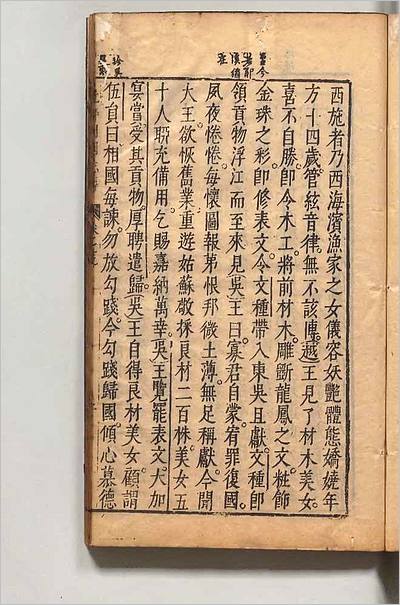 西施者乃西海濱漁家之女儀容妖艷體態嬌嬈年
方十四歲管絃音律無不該博越王見了材木美女
喜不自勝即令木工將前材木雕斲龍鳳之文粧飾
金珠之彩即修表文令文種帶入東吳且獻文種即
領貢物浮江而至來見吳王曰寡君自蒙宥罪復國
夙夜惓惓每懷圖報第恨邦微土薄無足稱獻今聞
大王欲恢舊業重遊姑蘇敬採良材二百株美女五
十人聊充備用乞賜嘉納萬幸吳王覽罷表文大加
宴賞受其貢物厚聘遣歸吳王自得良材美女顧謂
伍員曰相國每諫勿放勾踐今勾踐歸國傾心慕德